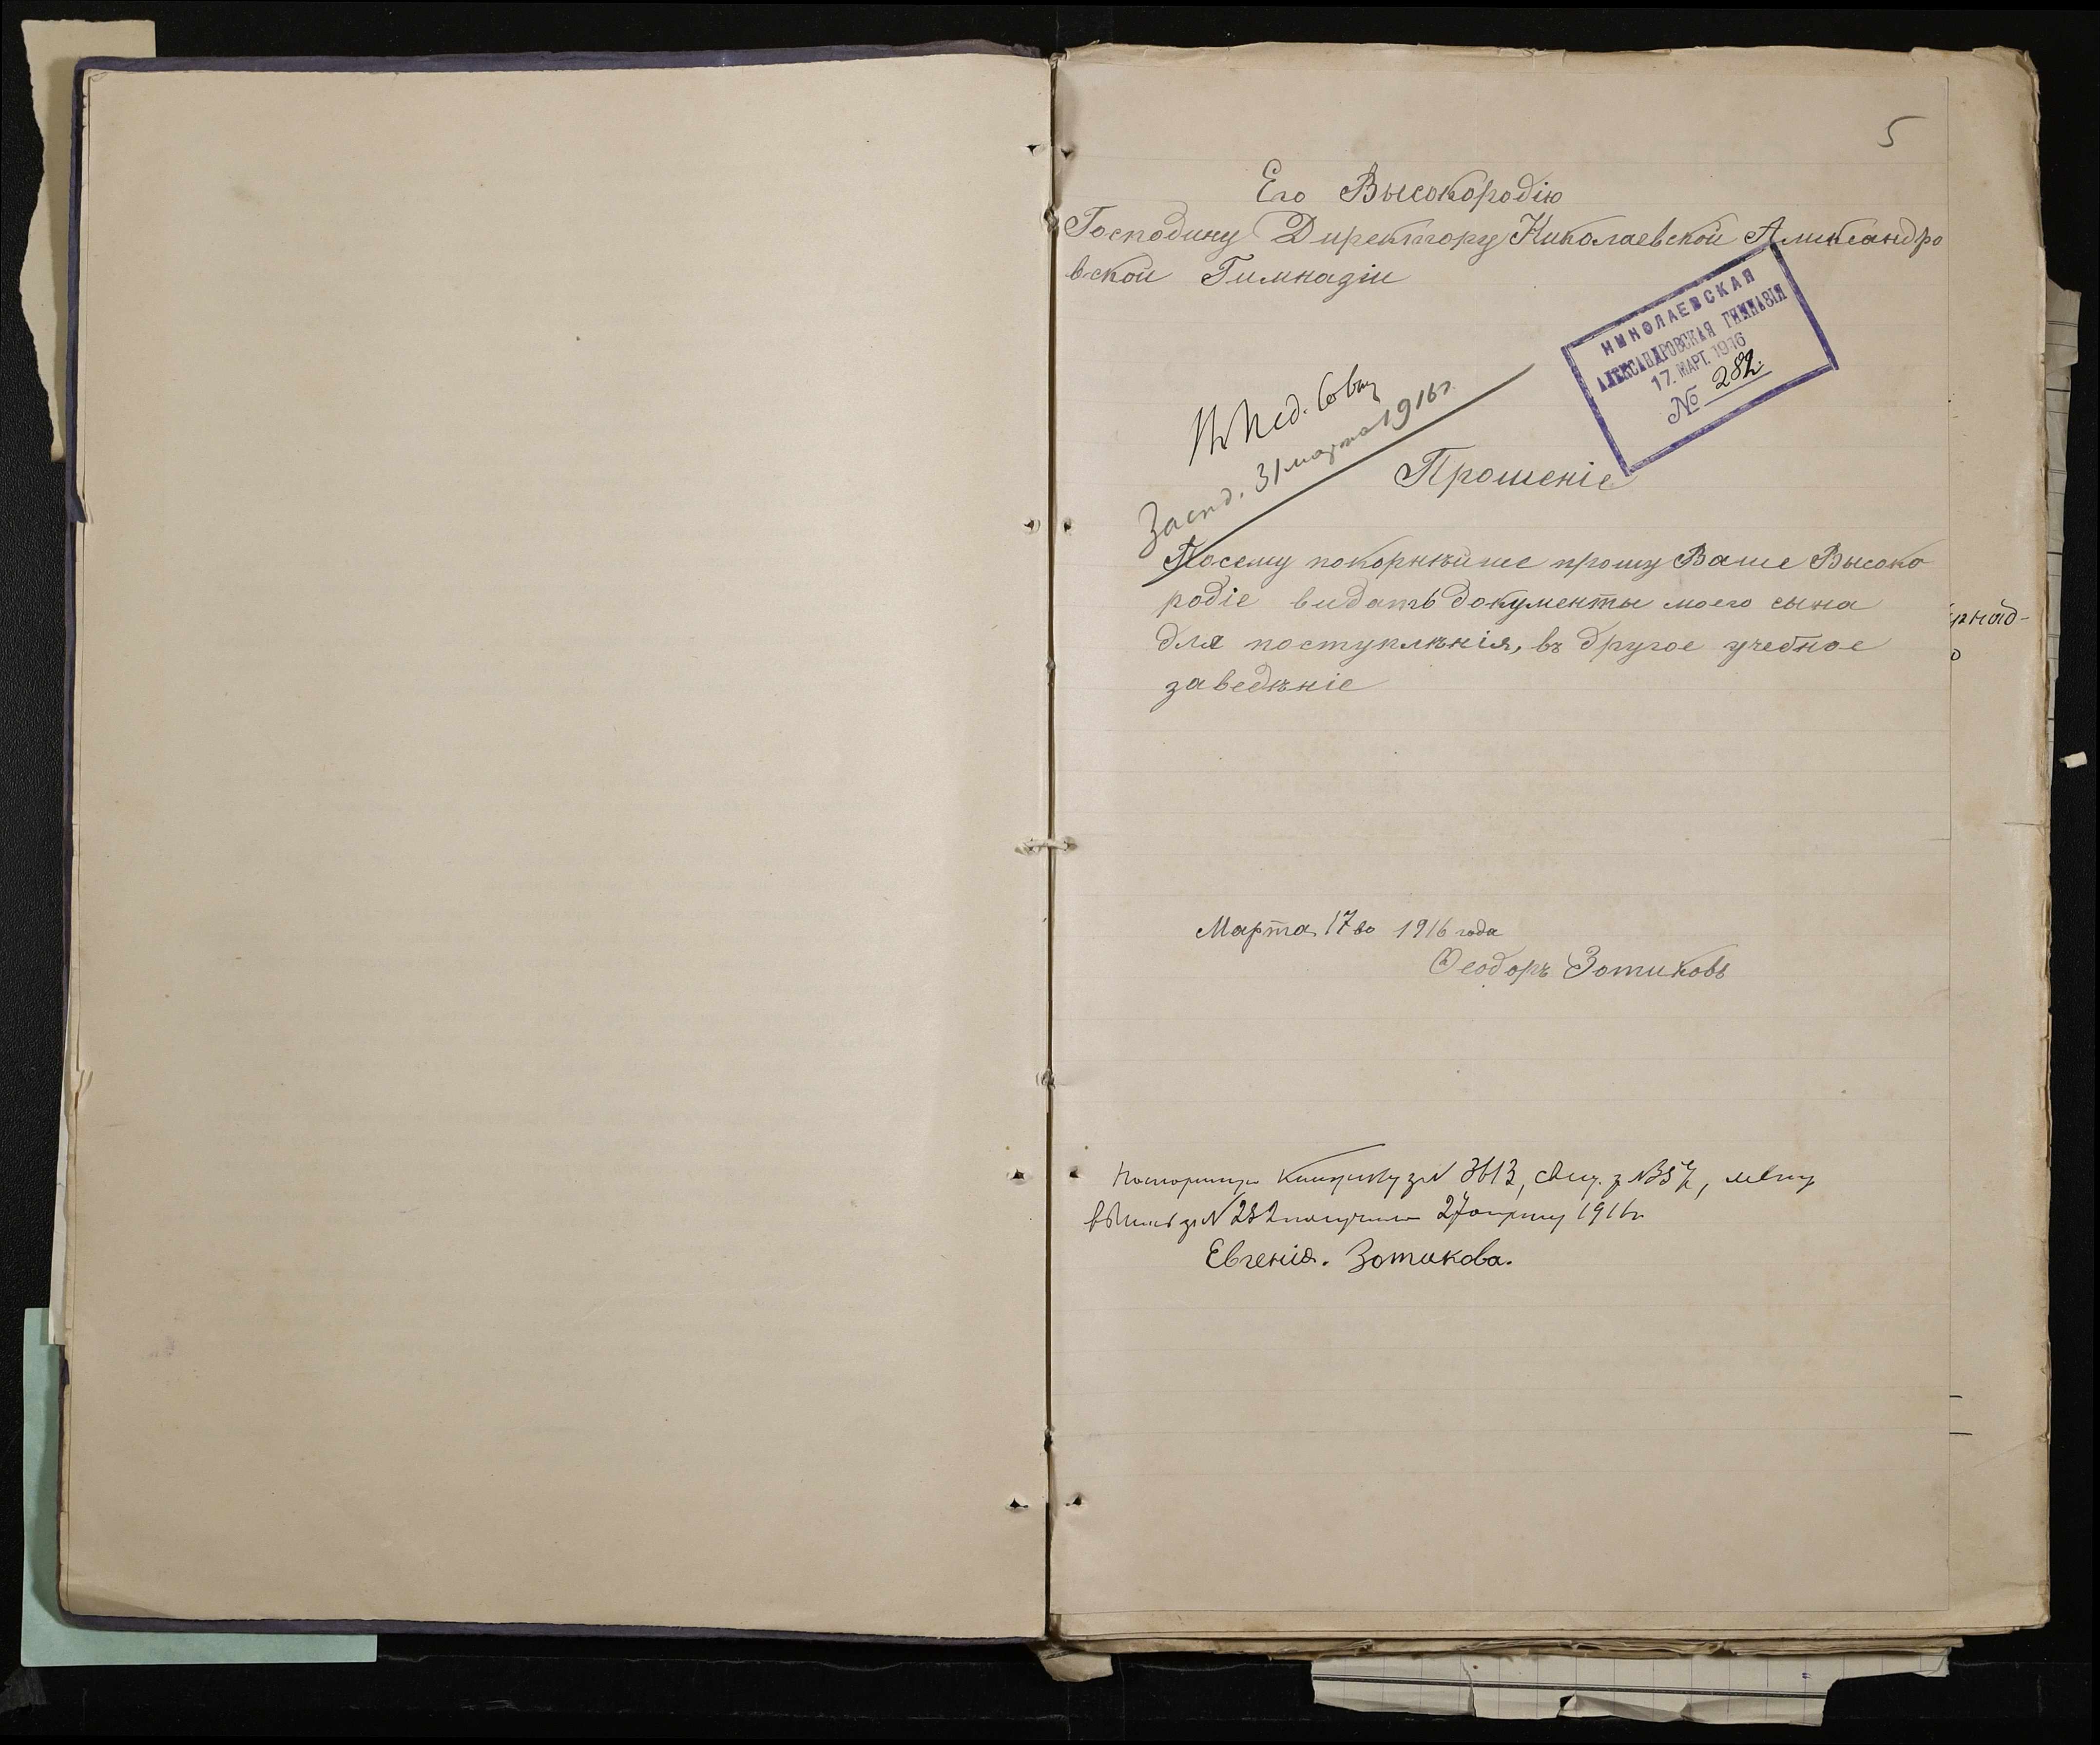 5
Его Высокородію
Господину Директору Николаевской Александро
вской Гимназіи
НИКОЛАЕВСКАЯ
АЛЕКСАНДРОВСКАЯ ГИМНАЗІЯ
17. МАРТ. 1916
№ 282.
Пед. Совѣту
Засѣд. 31 марта 1916 г.
Прошеніе
Посему покорнѣйше прошу Ваше Высоко
родіе видать документы моего сына
для поступлѣнія, въ другое учебное
заведѣніе
Марта 17 го 1916 года
Ѳеодоръ Зотиковъ
книжку за № 3613, свид. з №
за № 282 получила 27 апрѣля 1916 г.
Евгенія. Зотикова.